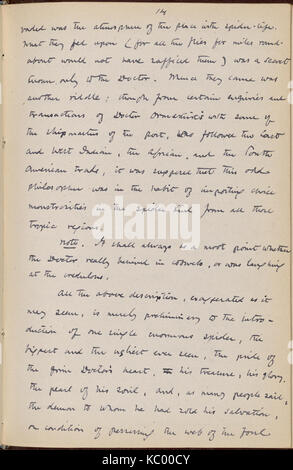 14
vaded was the atmosphere of the place with spider-life.
What they fed upon (for all the flies for miles round-
about would not have sufficed them) was a secret
known only to the Doctor. Whence they came was
another riddle; though from certain inquiries and
transactions of Doctor Ormskirk's with some of
the shipmasters of the port, who followed the East
and West Indian, the African, and the South
American trade, it was supposed that this odd
philosopher was in the habit of importing choice
monstrosities in the spider kind from all those
tropic regions.
Note. It shall always be a moot point whether
the Doctor really believed in cobwebs, or was laughing
at the credulous.
All the above description, exaggerated as it
may seem, is merely preliminary to the intro-
duction of one single enormous spider, the
biggest and the ugliest ever seen, the pride of
the grim Doctor's heart, his treasure, his glory,
the pearl of his soul, and, as many people said,
the demon to whom he had sold his salvation,
on condition of possessing the web of the foul
alamy
Image ID: KC00YC
www.alamy.com